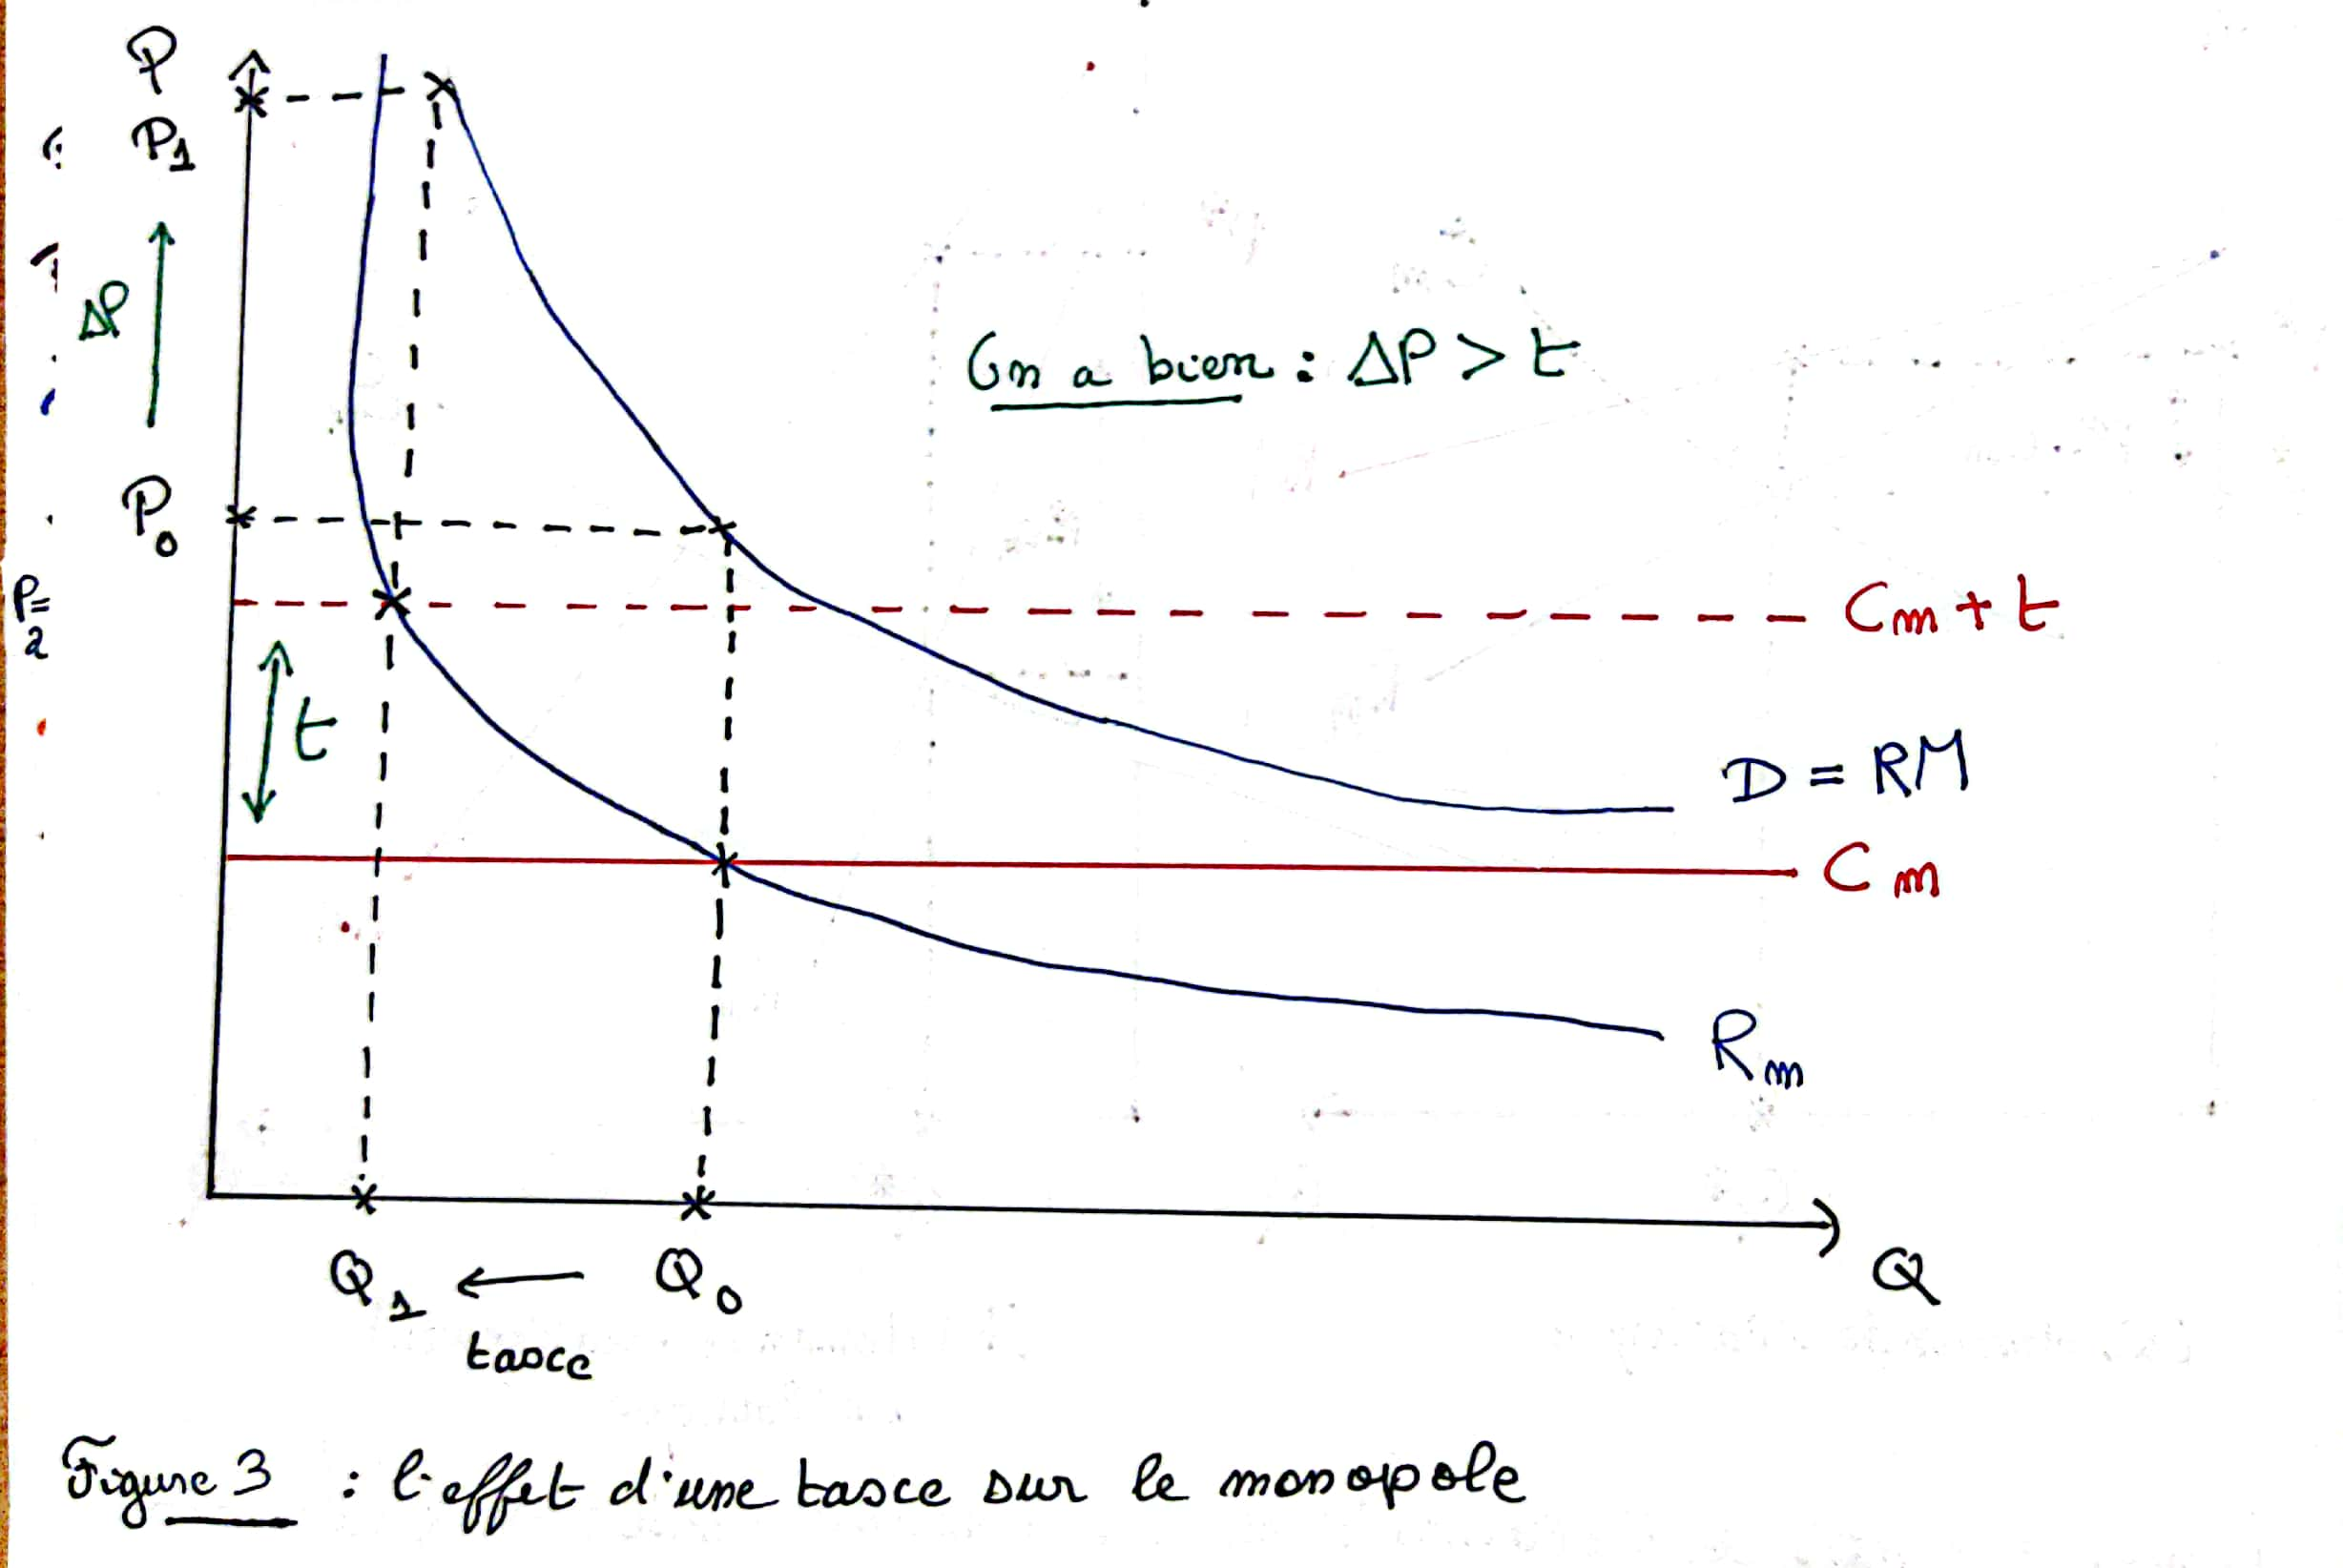 P
P1
ΔP
On a bien : ΔP > t
P0
Cm + t
t
D = RM
Cm
Rm
Q1 ← Q0
Q
taxe
Figure 3 : l'effet d'une taxe sur le monopole